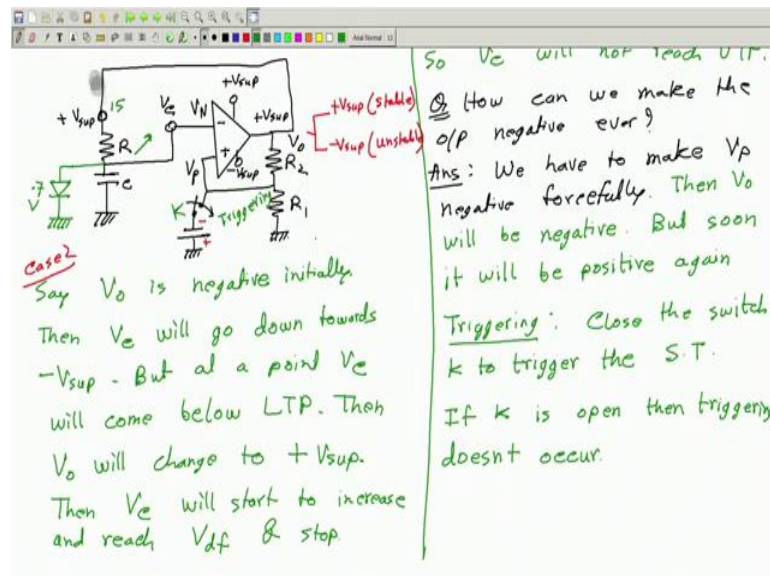 Arial Normal 12
+Vsup
+Vsup 15
Vc
VN
+Vsup
+Vsup (stable)
R
V0
-Vsup (unstable)
+
R2
.7
V
c
VP
-Vsup
K
Triggering
R1
-
+
Case2
Say V0 is negative initially.
Then Vc will go down towards
-Vsup. But at a point Vc
will come below LTP. Then
V0 will change to + Vsup.
Then Vc will start to increase
and reach Vdf & stop.
So Vc will not reach UTP.
Q How can we make the
o/p negative ever?
Ans: We have to make Vp
negative forcefully. Then V0
will be negative. But soon
it will be positive again
Triggering: Close the switch
k to trigger the S.T.
If K is open then triggering
doesnt occur.